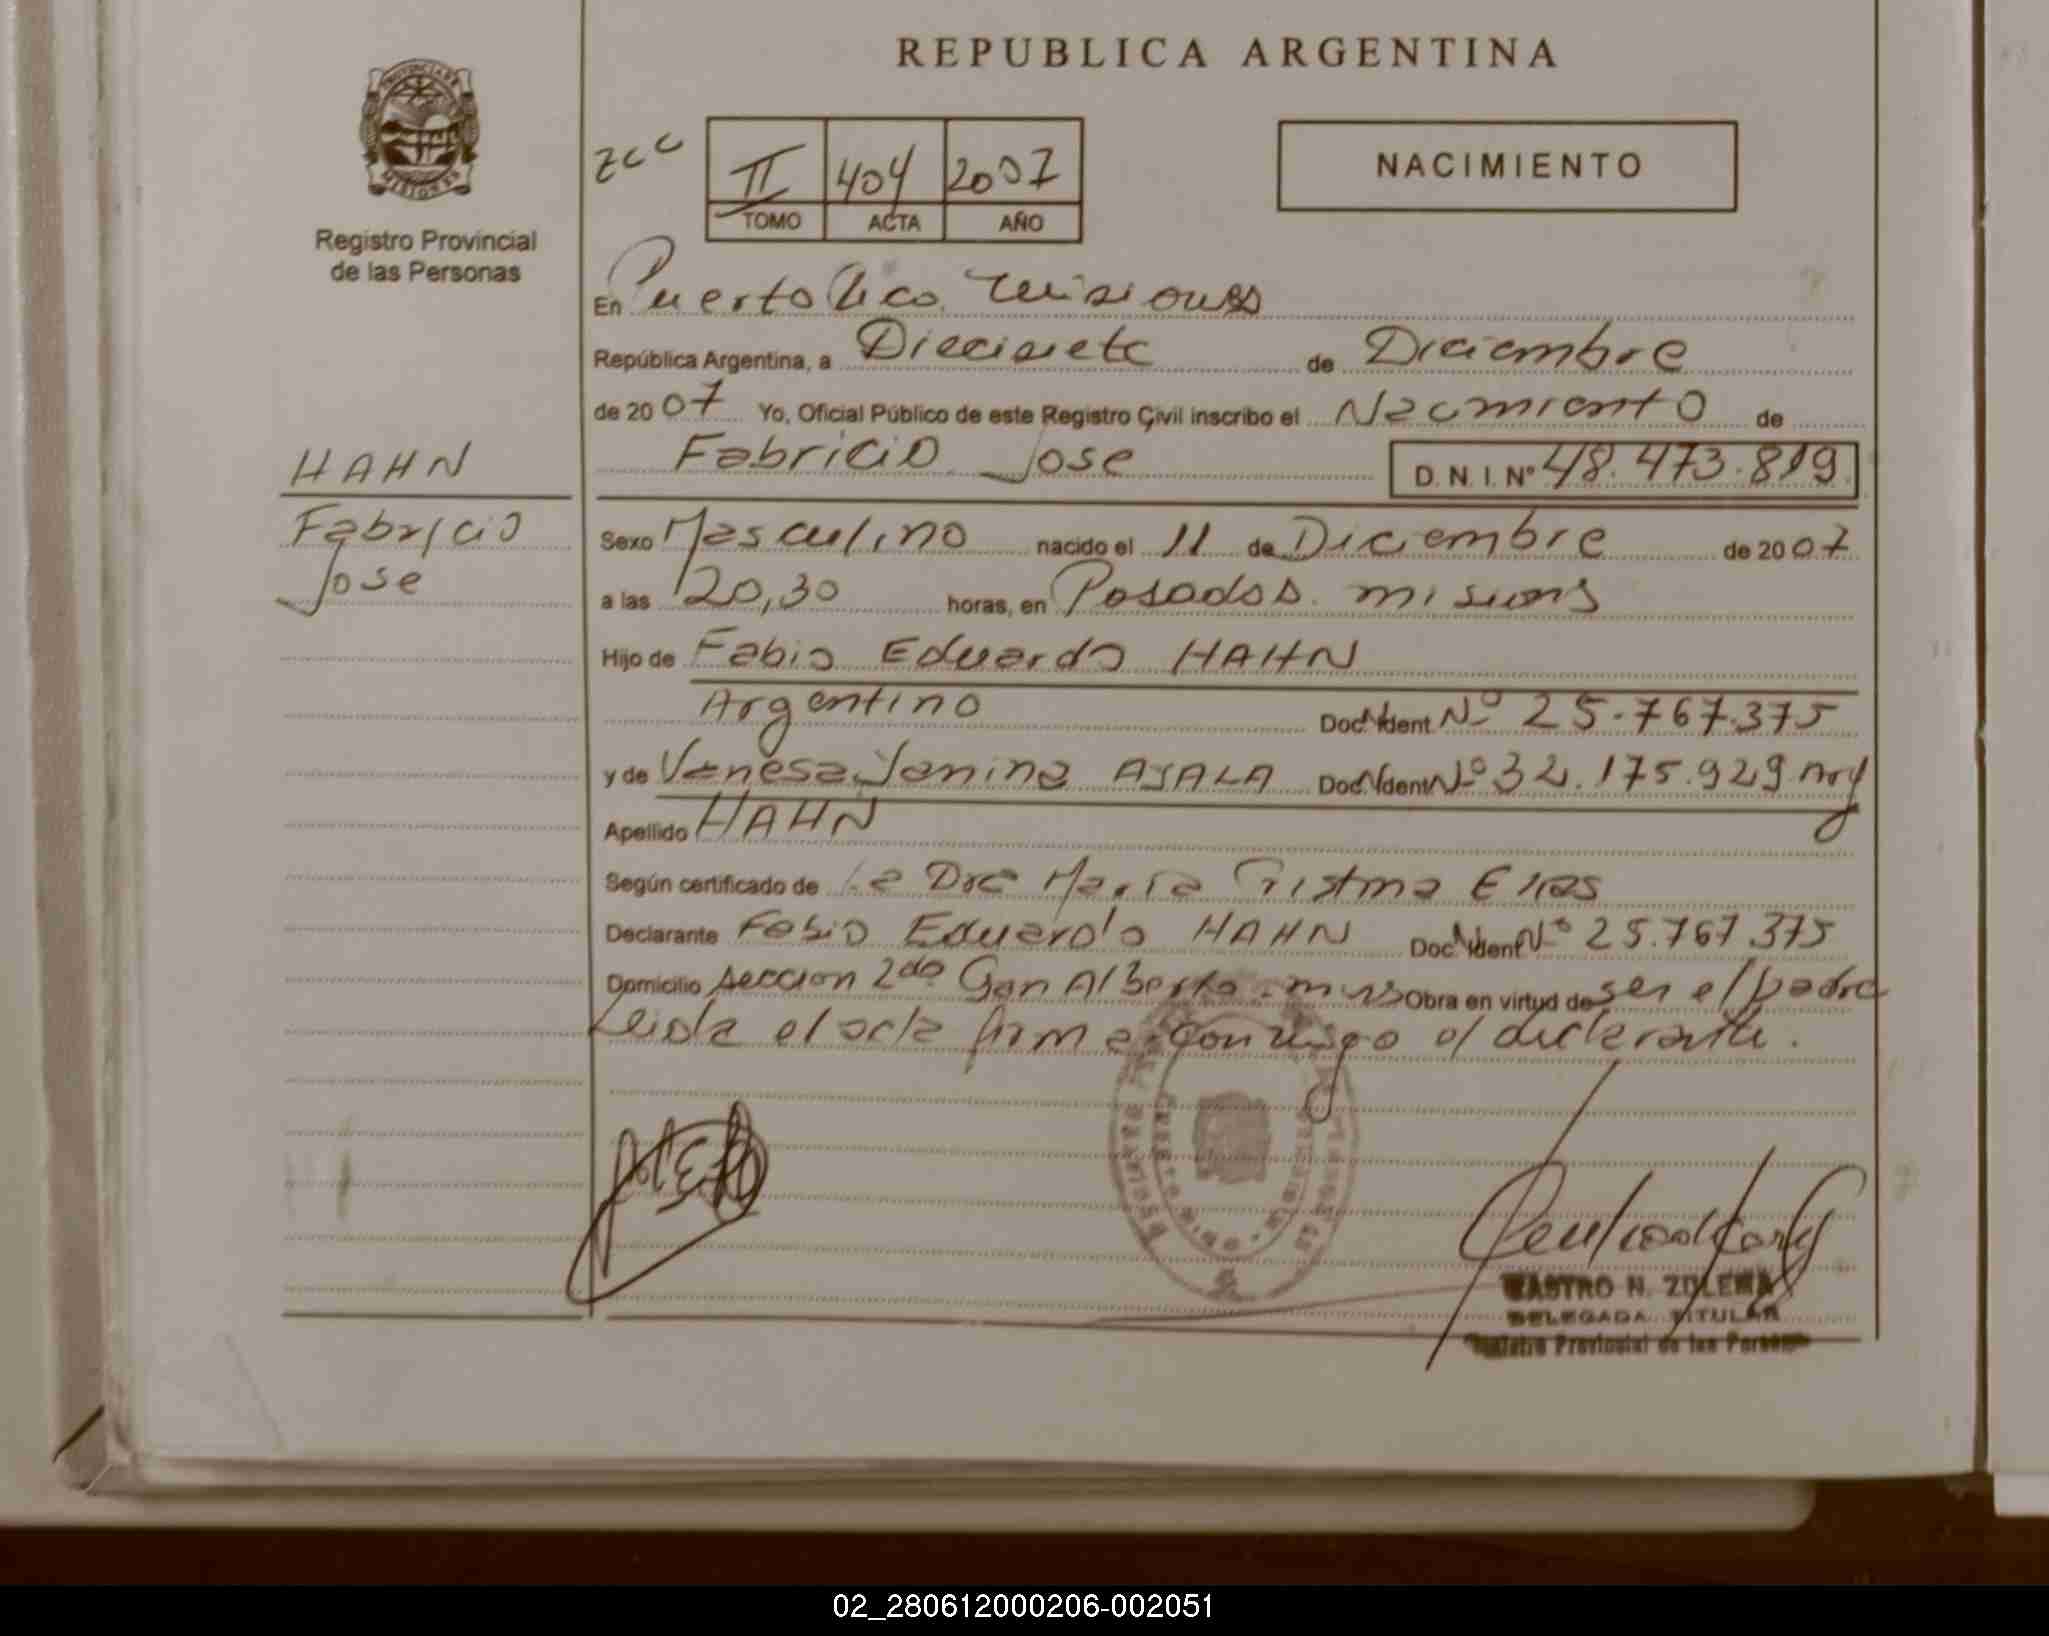 REPUBLICA ARGENTINA
PROVINCIA DE
MISIONES
Registro Provincial
de las Personas
zcc
II 404 2007
TOMO ACTA AÑO
NACIMIENTO
En Puerto Rico. Misiones
República Argentina, a Diecisiete de Diciembre
de 2007 Yo, Oficial Público de este Registro Civil inscribo el Nacimiento de
Fabricio Jose D.N.I. Nº 48.473.819
HAHN
Fabricio
Jose
Sexo Masculino nacido el 11 de Diciembre de 2007
a las 20,30 horas, en Posadas. misiones
Hijo de Fabio Eduardo HAHN
Argentino Doc. Ident. Nº 25.767.375
y de Vanesa Yanina AYALA Doc. Ident. Nº 32.175.929
Apellido HAHN
Según certificado de La Dra Maria Cristina Elias
Declarante Fabio Eduardo HAHN Doc. Ident. Nº 25.767.375
Domicilio seccion 2da Gan Alberto - mnes Obra en virtud de ser el padre
Leida el acta firma conmigo el declarante.
CASTRO N. ZULEMA
DELEGADA TITULAR
Registro Provincial de las Personas
02_280612000206-002051